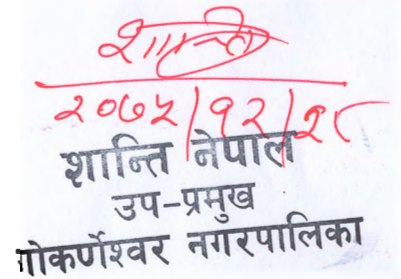 शान्ति
२०७५/१२/२८
शान्ति नेपाल
उप-प्रमुख
गोकर्णेश्वर नगरपालिका